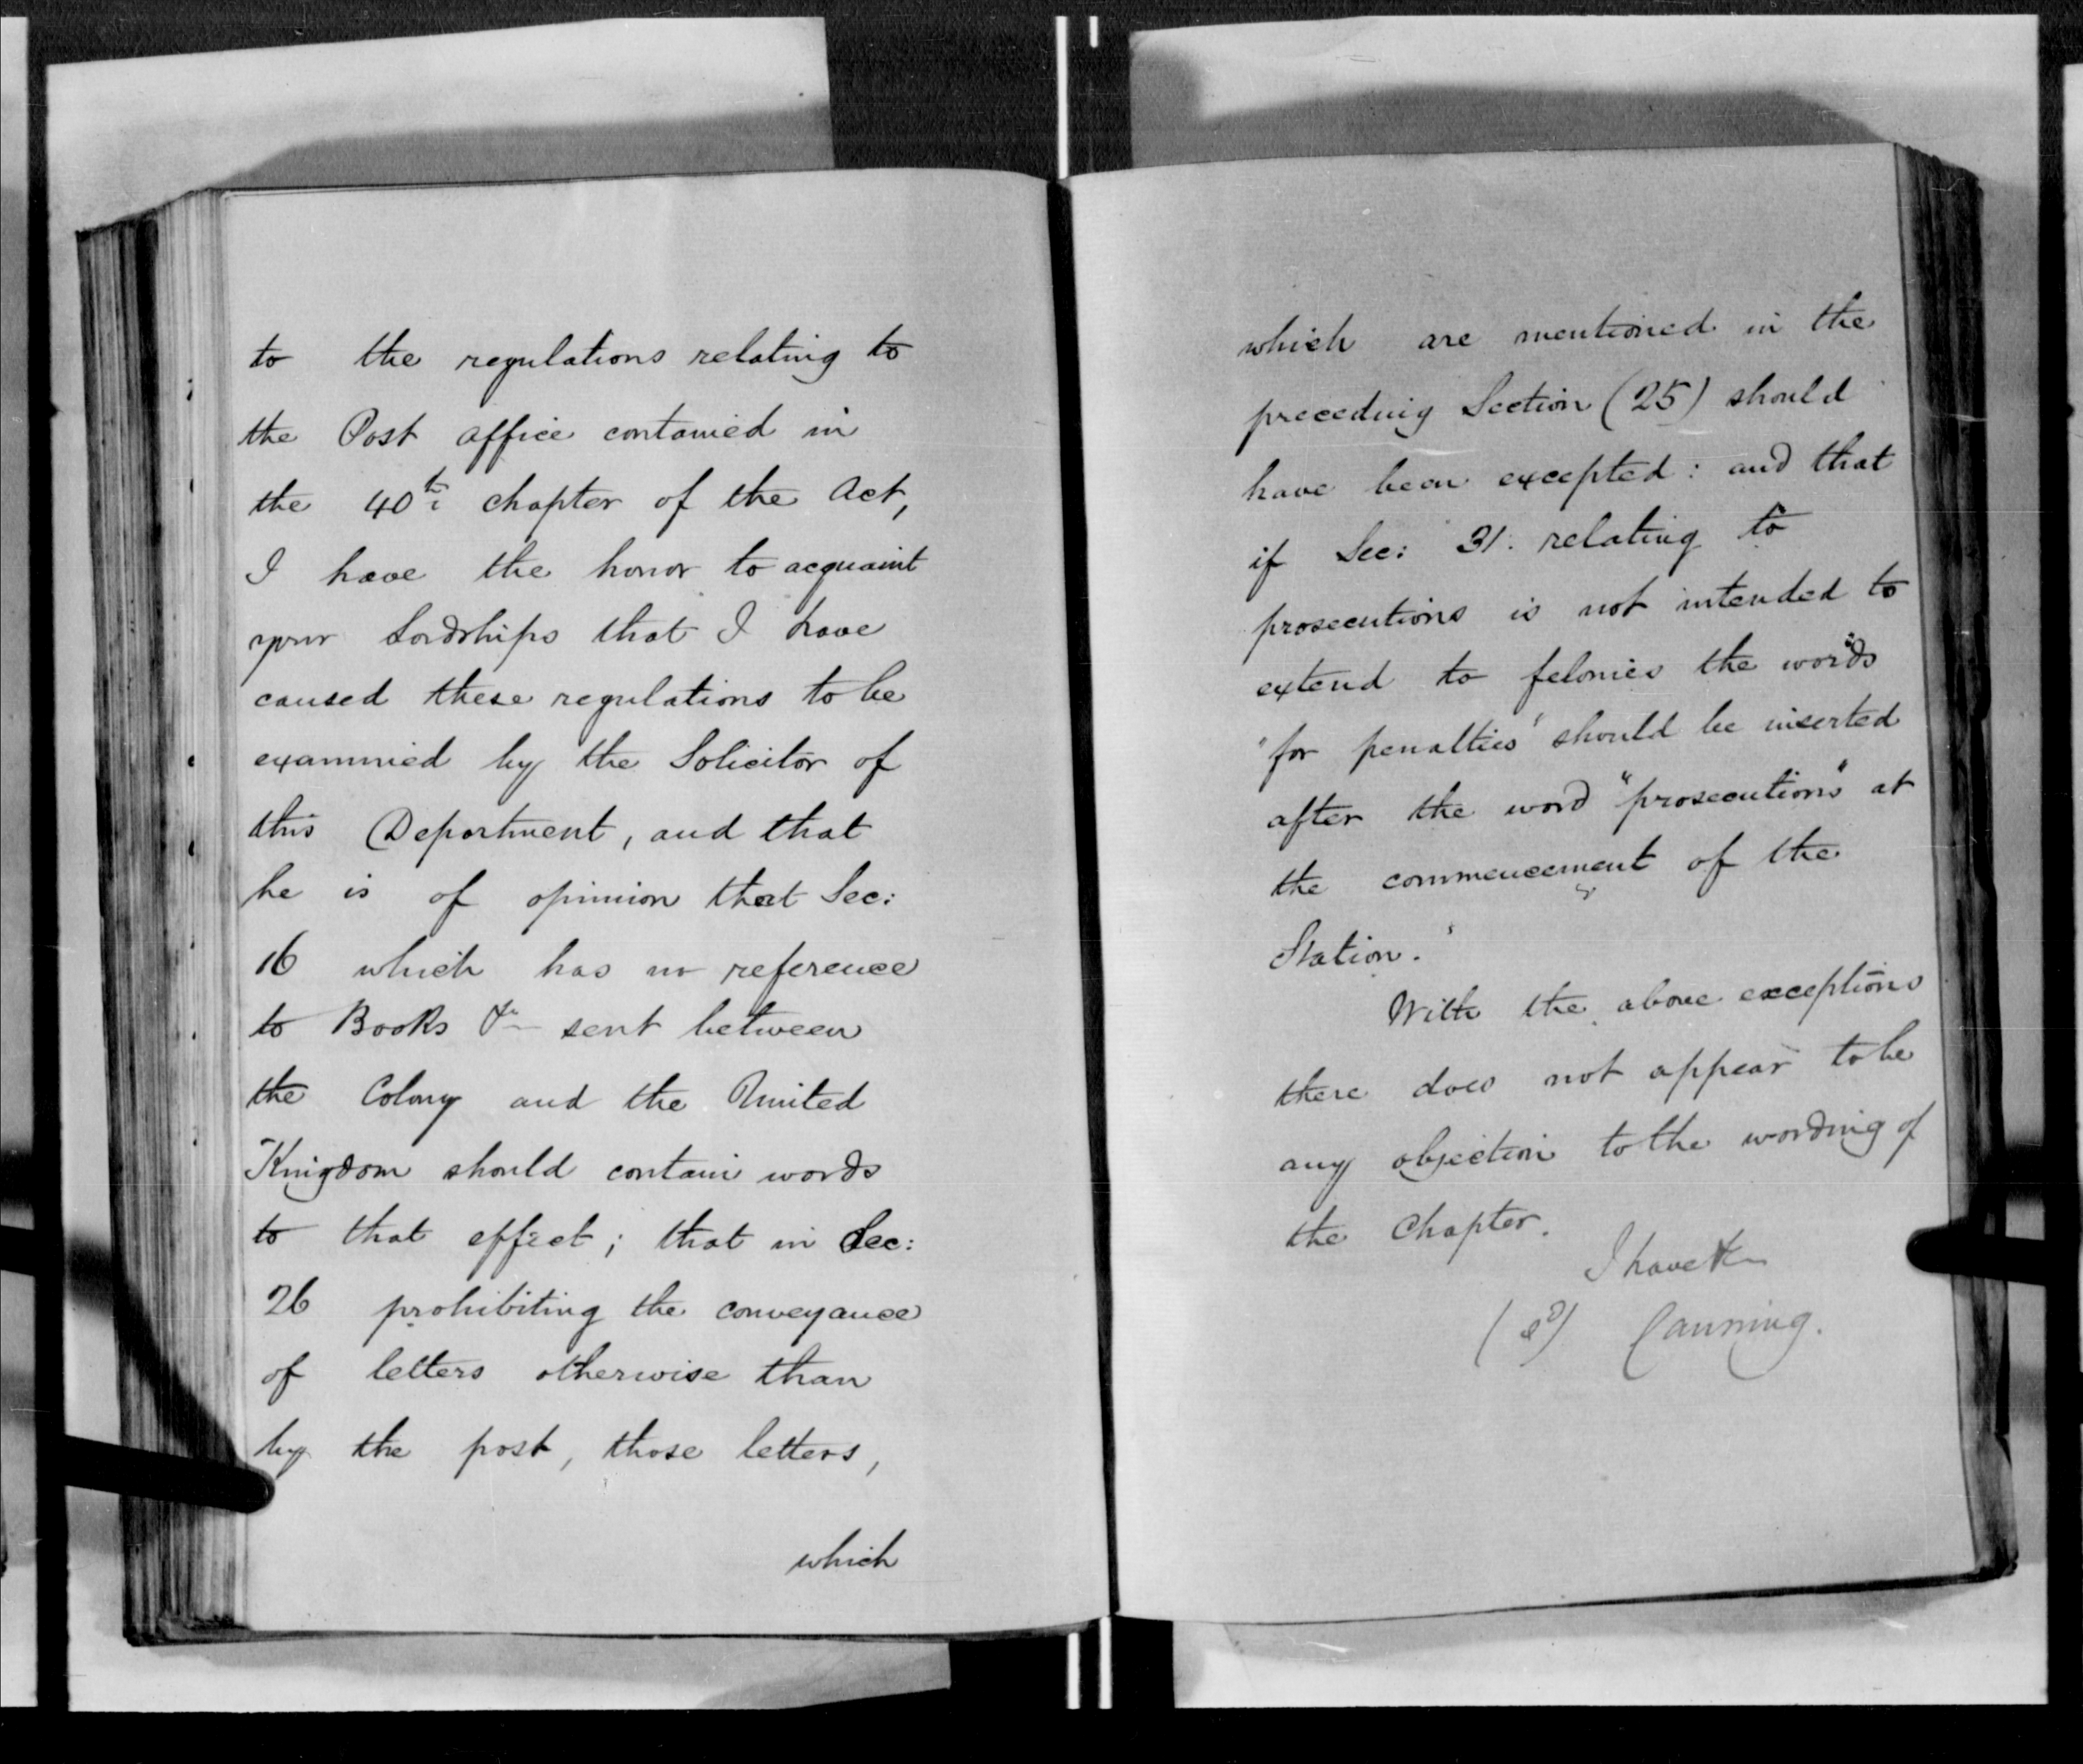 to the regulations relating to
the Post Office contained in
the 40th chapter of the Act,
I have the honor to acquaint
your Lordships that I have
caused these regulations to be
examined by the Solicitor of
this Department, and that
he is of opinion that Sec:
16 which has no reference
to Books &c sent between
the Colony and the United
Kingdom should contain words
to that effect; that in Sec:
26 prohibiting the conveyance
of letters otherwise than
by the post, those letters,
which
which are mentioned in the
preceding Section (25) should
have been excepted: and that
if Sec: 31. relating to
prosecutions is not intended to
extend to felonies the words
"for penalties" should be inserted
after the word "prosecutions" at
the commencement of the
Station.
With the above exceptions
there does not appear to be
any objection to the wording of
the Chapter.
I have &c
(sd) Canning.